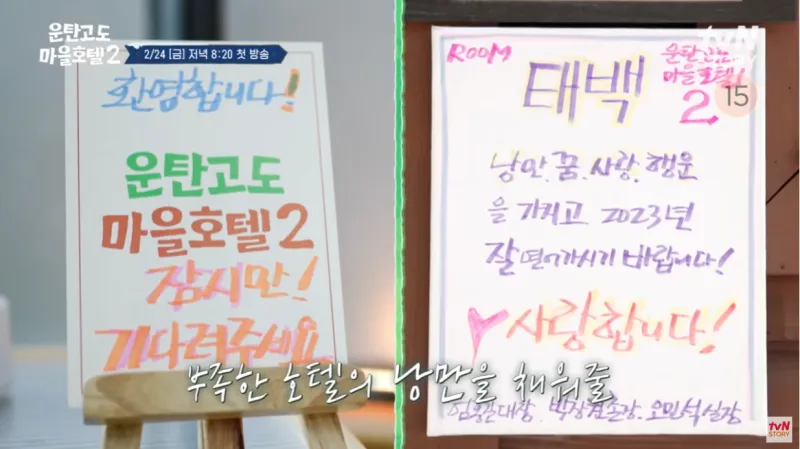 운탄고도
마을호텔2
2/24 [금] 저녁 8:20 첫 방송
환영합니다!
운탄고도
마을호텔2
잠시만!
기다려주세요
ROOM
운탄고도
마을호텔
2
tvN
STORY
15
태백
낭만.꿈.사랑.행운
을 가지고 2023년
잘 가시기 바랍니다!
사랑합니다!
엄홍길대장. 박상현촌장. 오민석실장
부족한 호텔의 낭만을 채워줄
tvN
STORY